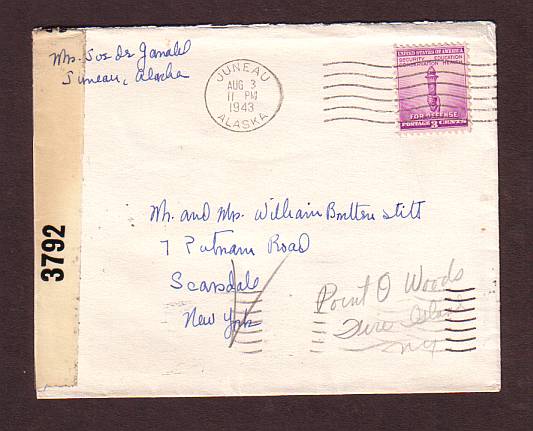 Juneau, Alaska
JUNEAU
AUG 3
11 PM
1943
ALASKA
UNITED STATES OF AMERICA
SECURITY EDUCATION
CONSERVATION HEALTH
FOR DEFENSE
POSTAGE 3 CENTS
3792
Mr. and Mrs. William Britton Stitt
7 Putnam Road
Scarsdale
New York
Point O Woods
Fire Island
NY